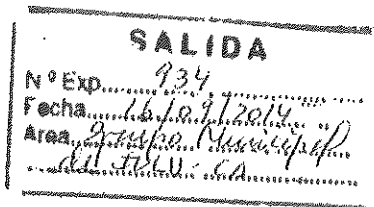 SALIDA
Nº Exp. 934
Fecha 16/09/2014
Area Grupo Municipal
del IULV-CA